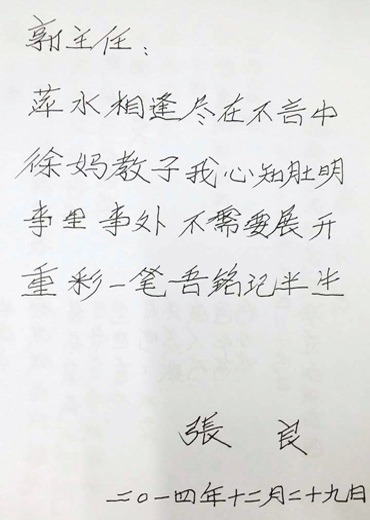 郭主任：
萍水相逢尽在不言中
徐妈教子我心知肚明
事里事外不需要展开
重彩一笔吾铭记半生
張良
二〇一四年十二月二十九日